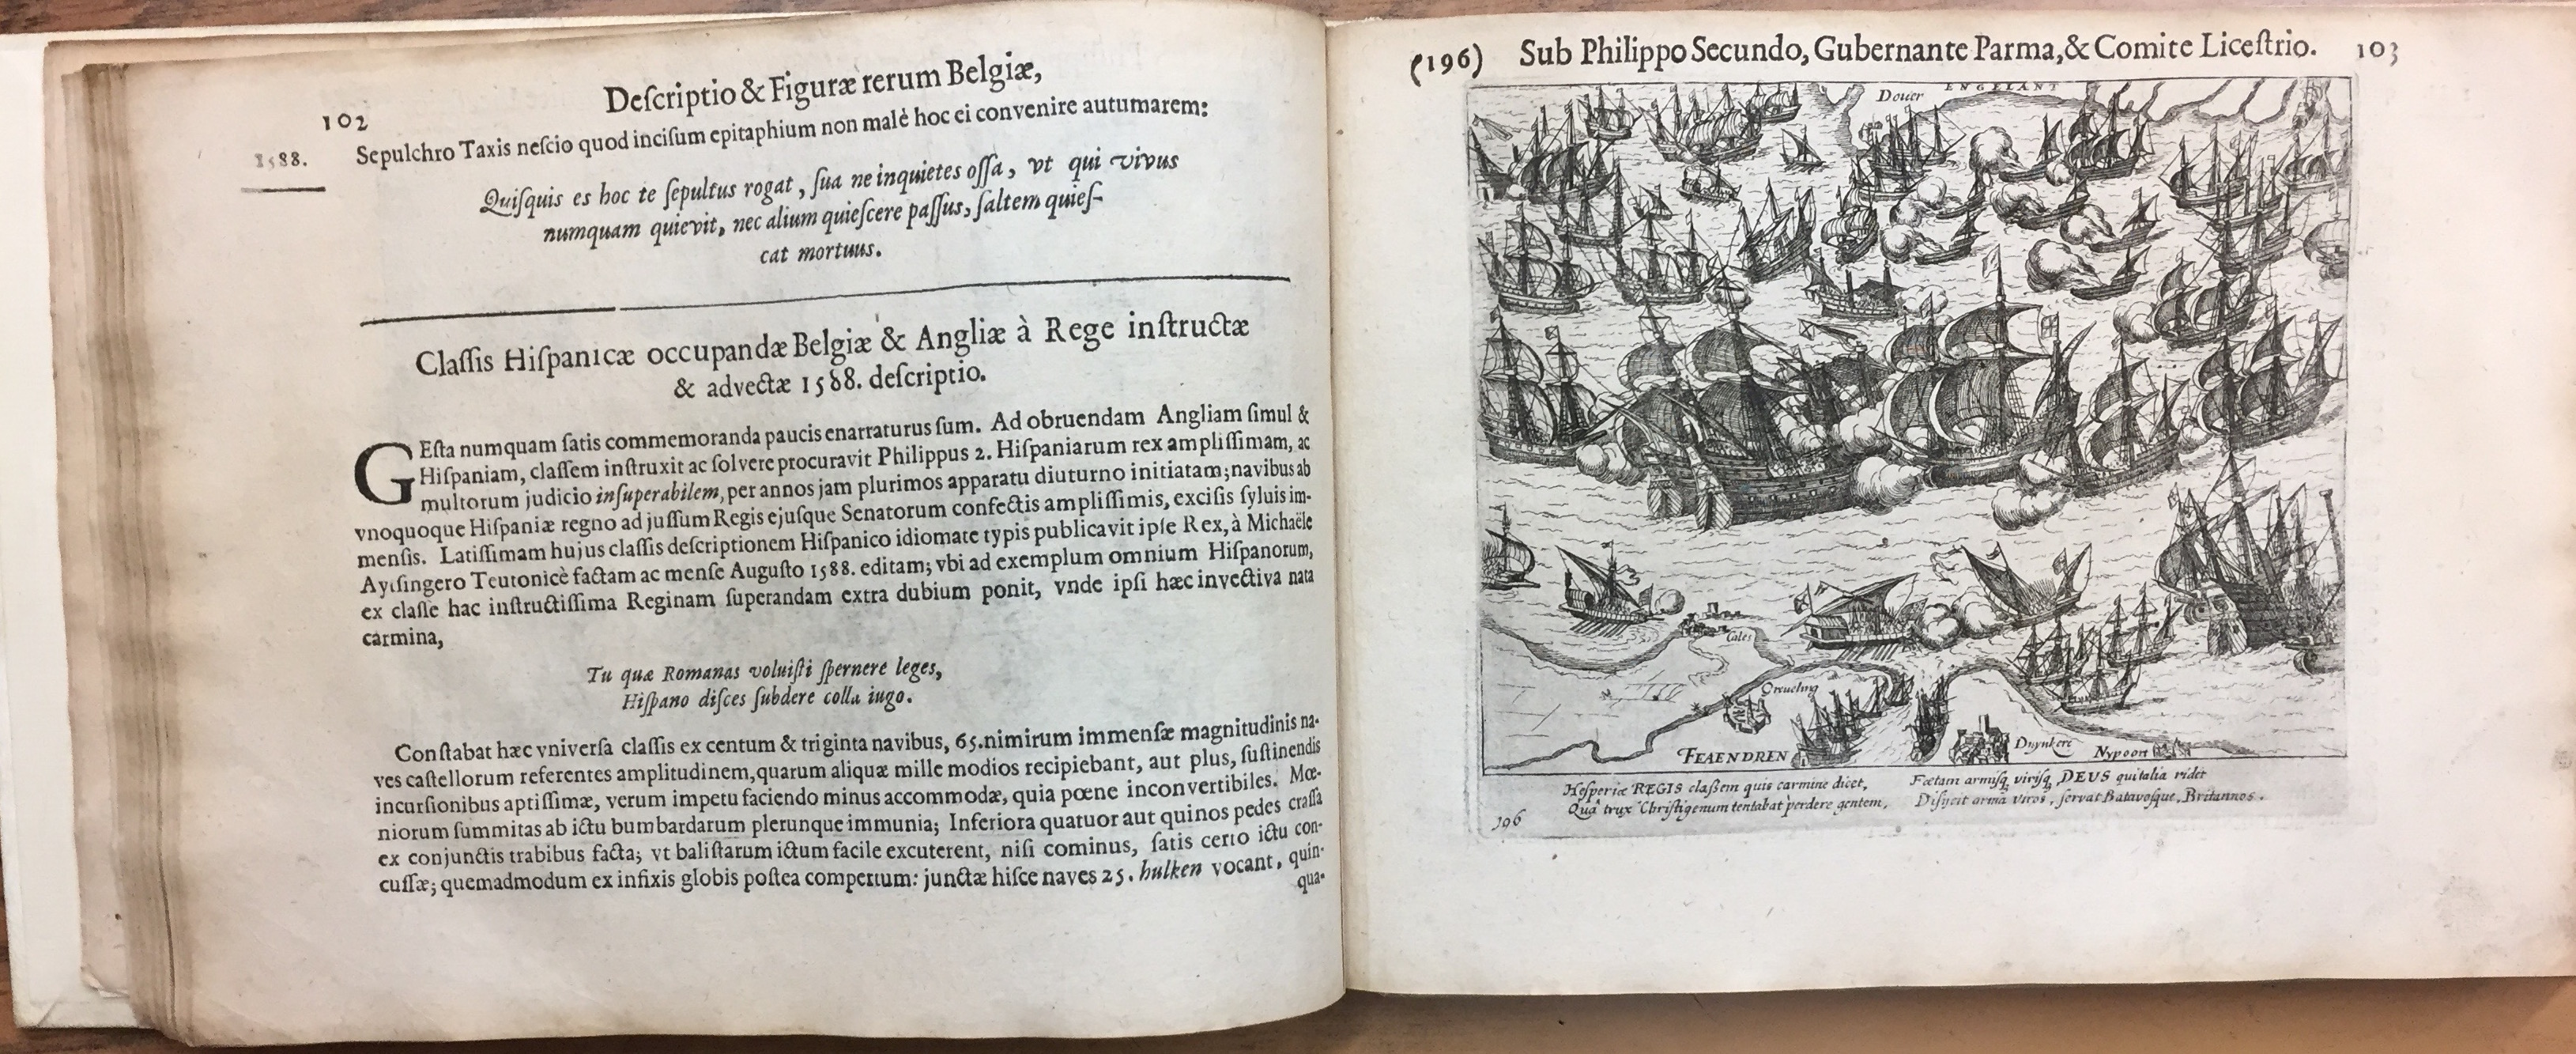 Deſcriptio & Figuræ rerum Belgiæ,
102
Sepulchro Taxis neſcio quod inciſum epitaphium non malè hoc ei convenire autumarem:
1588.
Quiſquis es hoc te ſepultus rogat, ſua ne inquietes oſſa, vt qui vivus
numquam quievit, nec alium quieſcere paſſus, ſaltem quieſ-
cat mortuus.
Claſſis Hiſpanicæ occupandæ Belgiæ & Angliæ à Rege inſtructæ
& advectæ 1588. deſcriptio.
GEſta numquam ſatis commemoranda paucis enarraturus ſum. Ad obruendam Angliam ſimul &
Hiſpaniam, claſſem inſtruxit ac ſolvere procuravit Philippus 2. Hiſpaniarum rex ampliſſimam, ac
multorum judicio inſuperabilem, per annos jam plurimos apparatu diuturno initiatam; navibus ab
vnoquoque Hiſpaniæ regno ad juſſum Regis ejuſque Senatorum confectis ampliſſimis, exciſis ſyluis im-
menſis. Latiſſimam hujus claſſis deſcriptionem Hiſpanico idiomate typis publicavit ipſe Rex, à Michaële
Aytſingero Teutonicè factam ac menſe Auguſto 1588. editam; vbi ad exemplum omnium Hiſpanorum,
ex claſſe hac inſtructiſſima Reginam ſuperandam extra dubium ponit, vnde ipſi hæc invectiva nata
carmina,
Tu quæ Romanas voluiſti ſpernere leges,
Hiſpano diſces ſubdere colla iugo.
Conſtabat hæc vniverſa claſſis ex centum & triginta navibus, 65. nimirum immenſæ magnitudinis na-
ves caſtellorum referentes amplitudinem, quarum aliquæ mille modios recipiebant, aut plus, ſuſtinendis
incurſionibus aptiſſimæ, verum impetu faciendo minus accommodæ, quia pœne inconvertibiles. Mœ-
niorum ſummitas ab ictu bumbardarum plerunque immunia; Inferiora quatuor aut quinos pedes craſſa
ex conjunctis trabibus facta; vt baliſtarum ictum facile excuterent, niſi cominus, ſatis certo ictu con-
cuſſæ; quemadmodum ex infixis globis poſtea compertum: junctæ hiſce naves 25. hulken vocant, quin-
qua-
(196) Sub Philippo Secundo, Gubernante Parma, & Comite Liceſtrio. 103
Douer ENGELANT
Cales
Greueling
FLAENDREN
Duynkerc
Nypoort
Heſperiæ REGIS claßem quis carmine dicet, Fœtam armiſq, viriſq, DEUS qui talia ridet
Quâ trux Chriſtigenum tentabat perdere gentem, Disijcit arma viros, ſervat Batavoſque, Britannos.
196